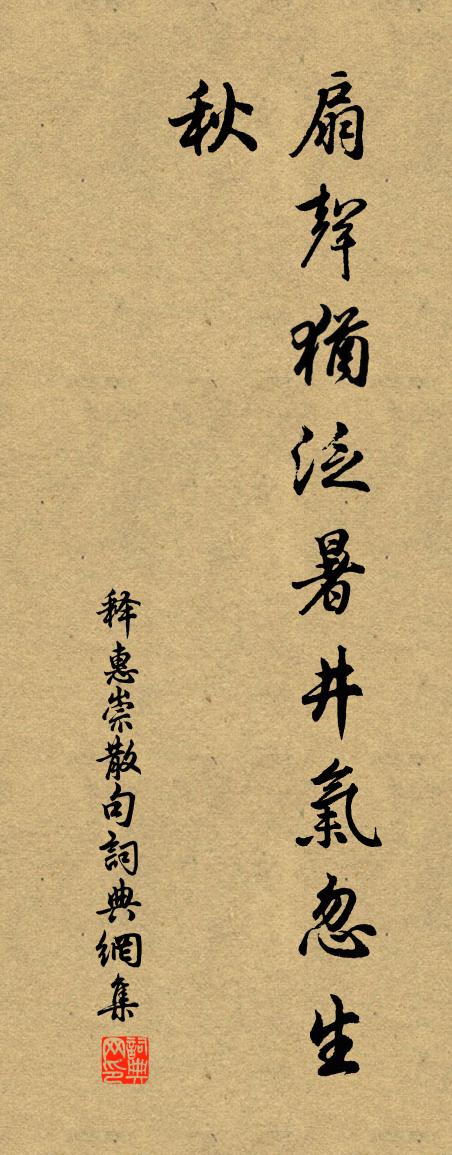 扇聲猶泛暑井氣忽生
秋
释惠崇散句詞典網集
詞典网印